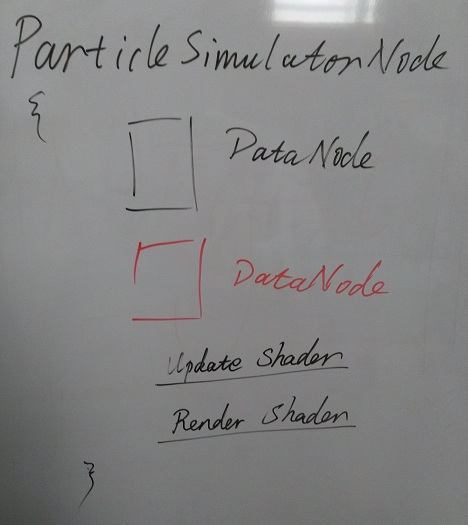 ParticleSimulatorNode
{
DataNode
DataNode
Update Shader
Render Shader
}